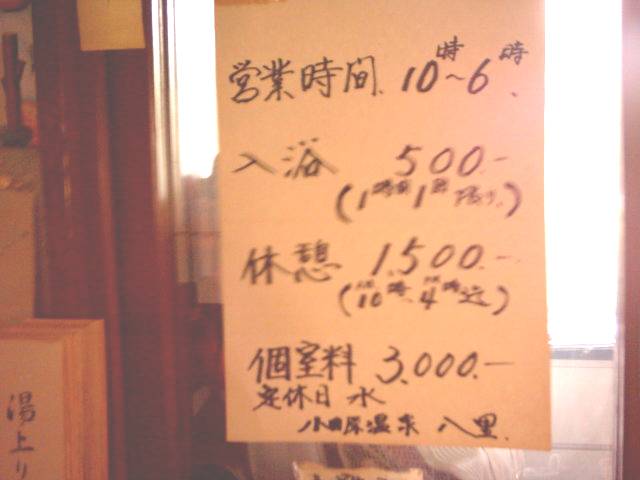 営業時間 10時~6時
入浴 500.-
(1時間1回限り)
休憩 1,500.-
(10時、4時迄)
個室料 3,000.-
定休日 水
小田原温泉 八里
湯上り